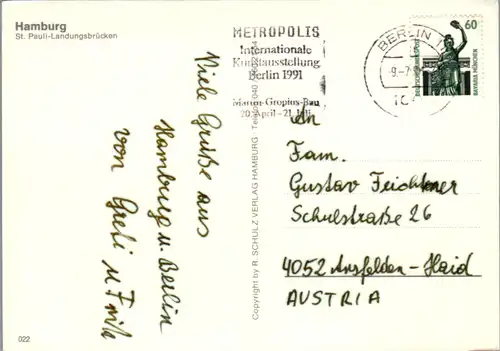 Hamburg
St. Pauli-Landungsbrücken
METROPOLIS
Internationale
Kunstausstellung
Berlin 1991
Martin-Gropius-Bau
20. April - 21. Juli
BERLIN
60
DEUTSCHE BUNDESPOST
BAVARIA MÜNCHEN
Viele Grüße aus
Hamburg u. Berlin
von Greti u Fritz
Copyright by R. SCHULZ VERLAG HAMBURG · Telefon 040
An
Fam.
Gustav Feichtner
Schulstraße 26
4052 Ansfelden-Haid
AUSTRIA
022